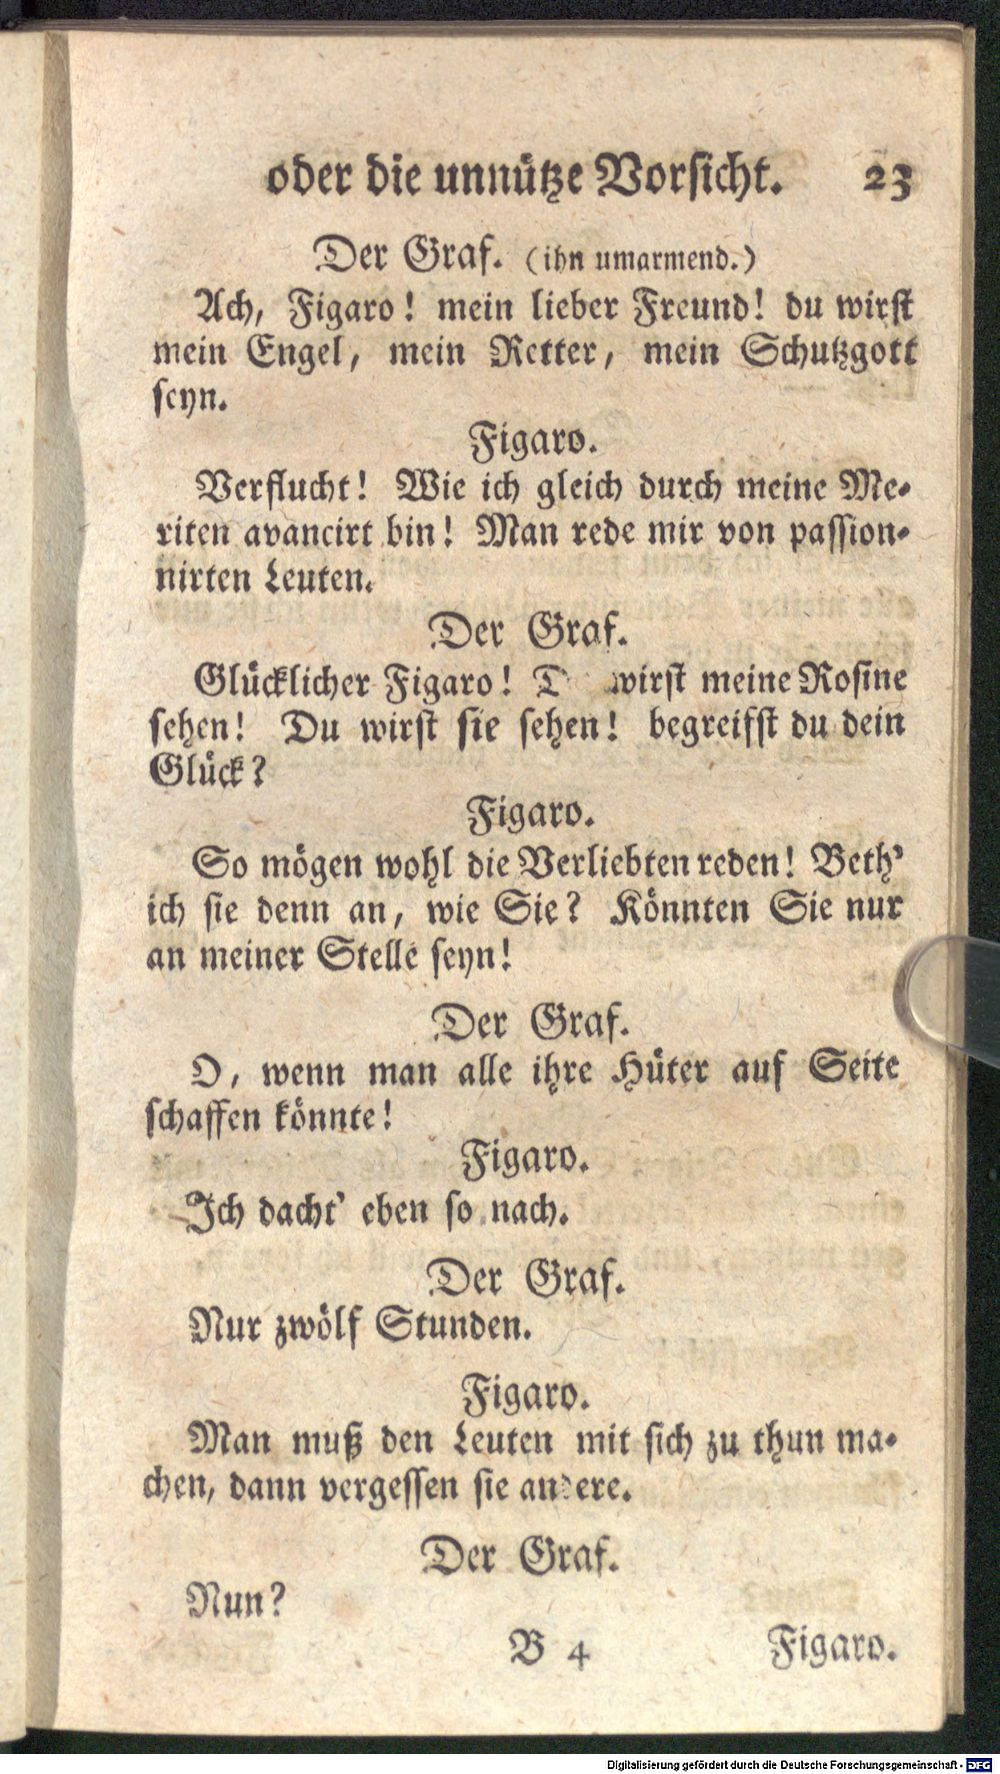 oder die unnütze Vorsicht. 23
Der Graf. (ihn umarmend.)
Ach, Figaro! mein lieber Freund! du wirst
mein Engel, mein Retter, mein Schutzgott
seyn.
Figaro.
Verflucht! Wie ich gleich durch meine Me-
riten avancirt bin! Man rede mir von passion-
nirten Leuten.
Der Graf.
Glücklicher Figaro! D wirst meine Rosine
sehen! Du wirst sie sehen! begreifst du dein
Glück?
Figaro.
So mögen wohl die Verliebten reden! Beth'
ich sie denn an, wie Sie? Könnten Sie nur
an meiner Stelle seyn!
Der Graf.
O, wenn man alle ihre Hüter auf Seite
schaffen könnte!
Figaro.
Ich dacht' eben so nach.
Der Graf.
Nur zwölf Stunden.
Figaro.
Man muß den Leuten mit sich zu thun ma-
chen, dann vergessen sie andere.
Der Graf.
Nun?
B 4 Figaro.
Digitalisierung gefördert durch die Deutsche Forschungsgemeinschaft - DFG